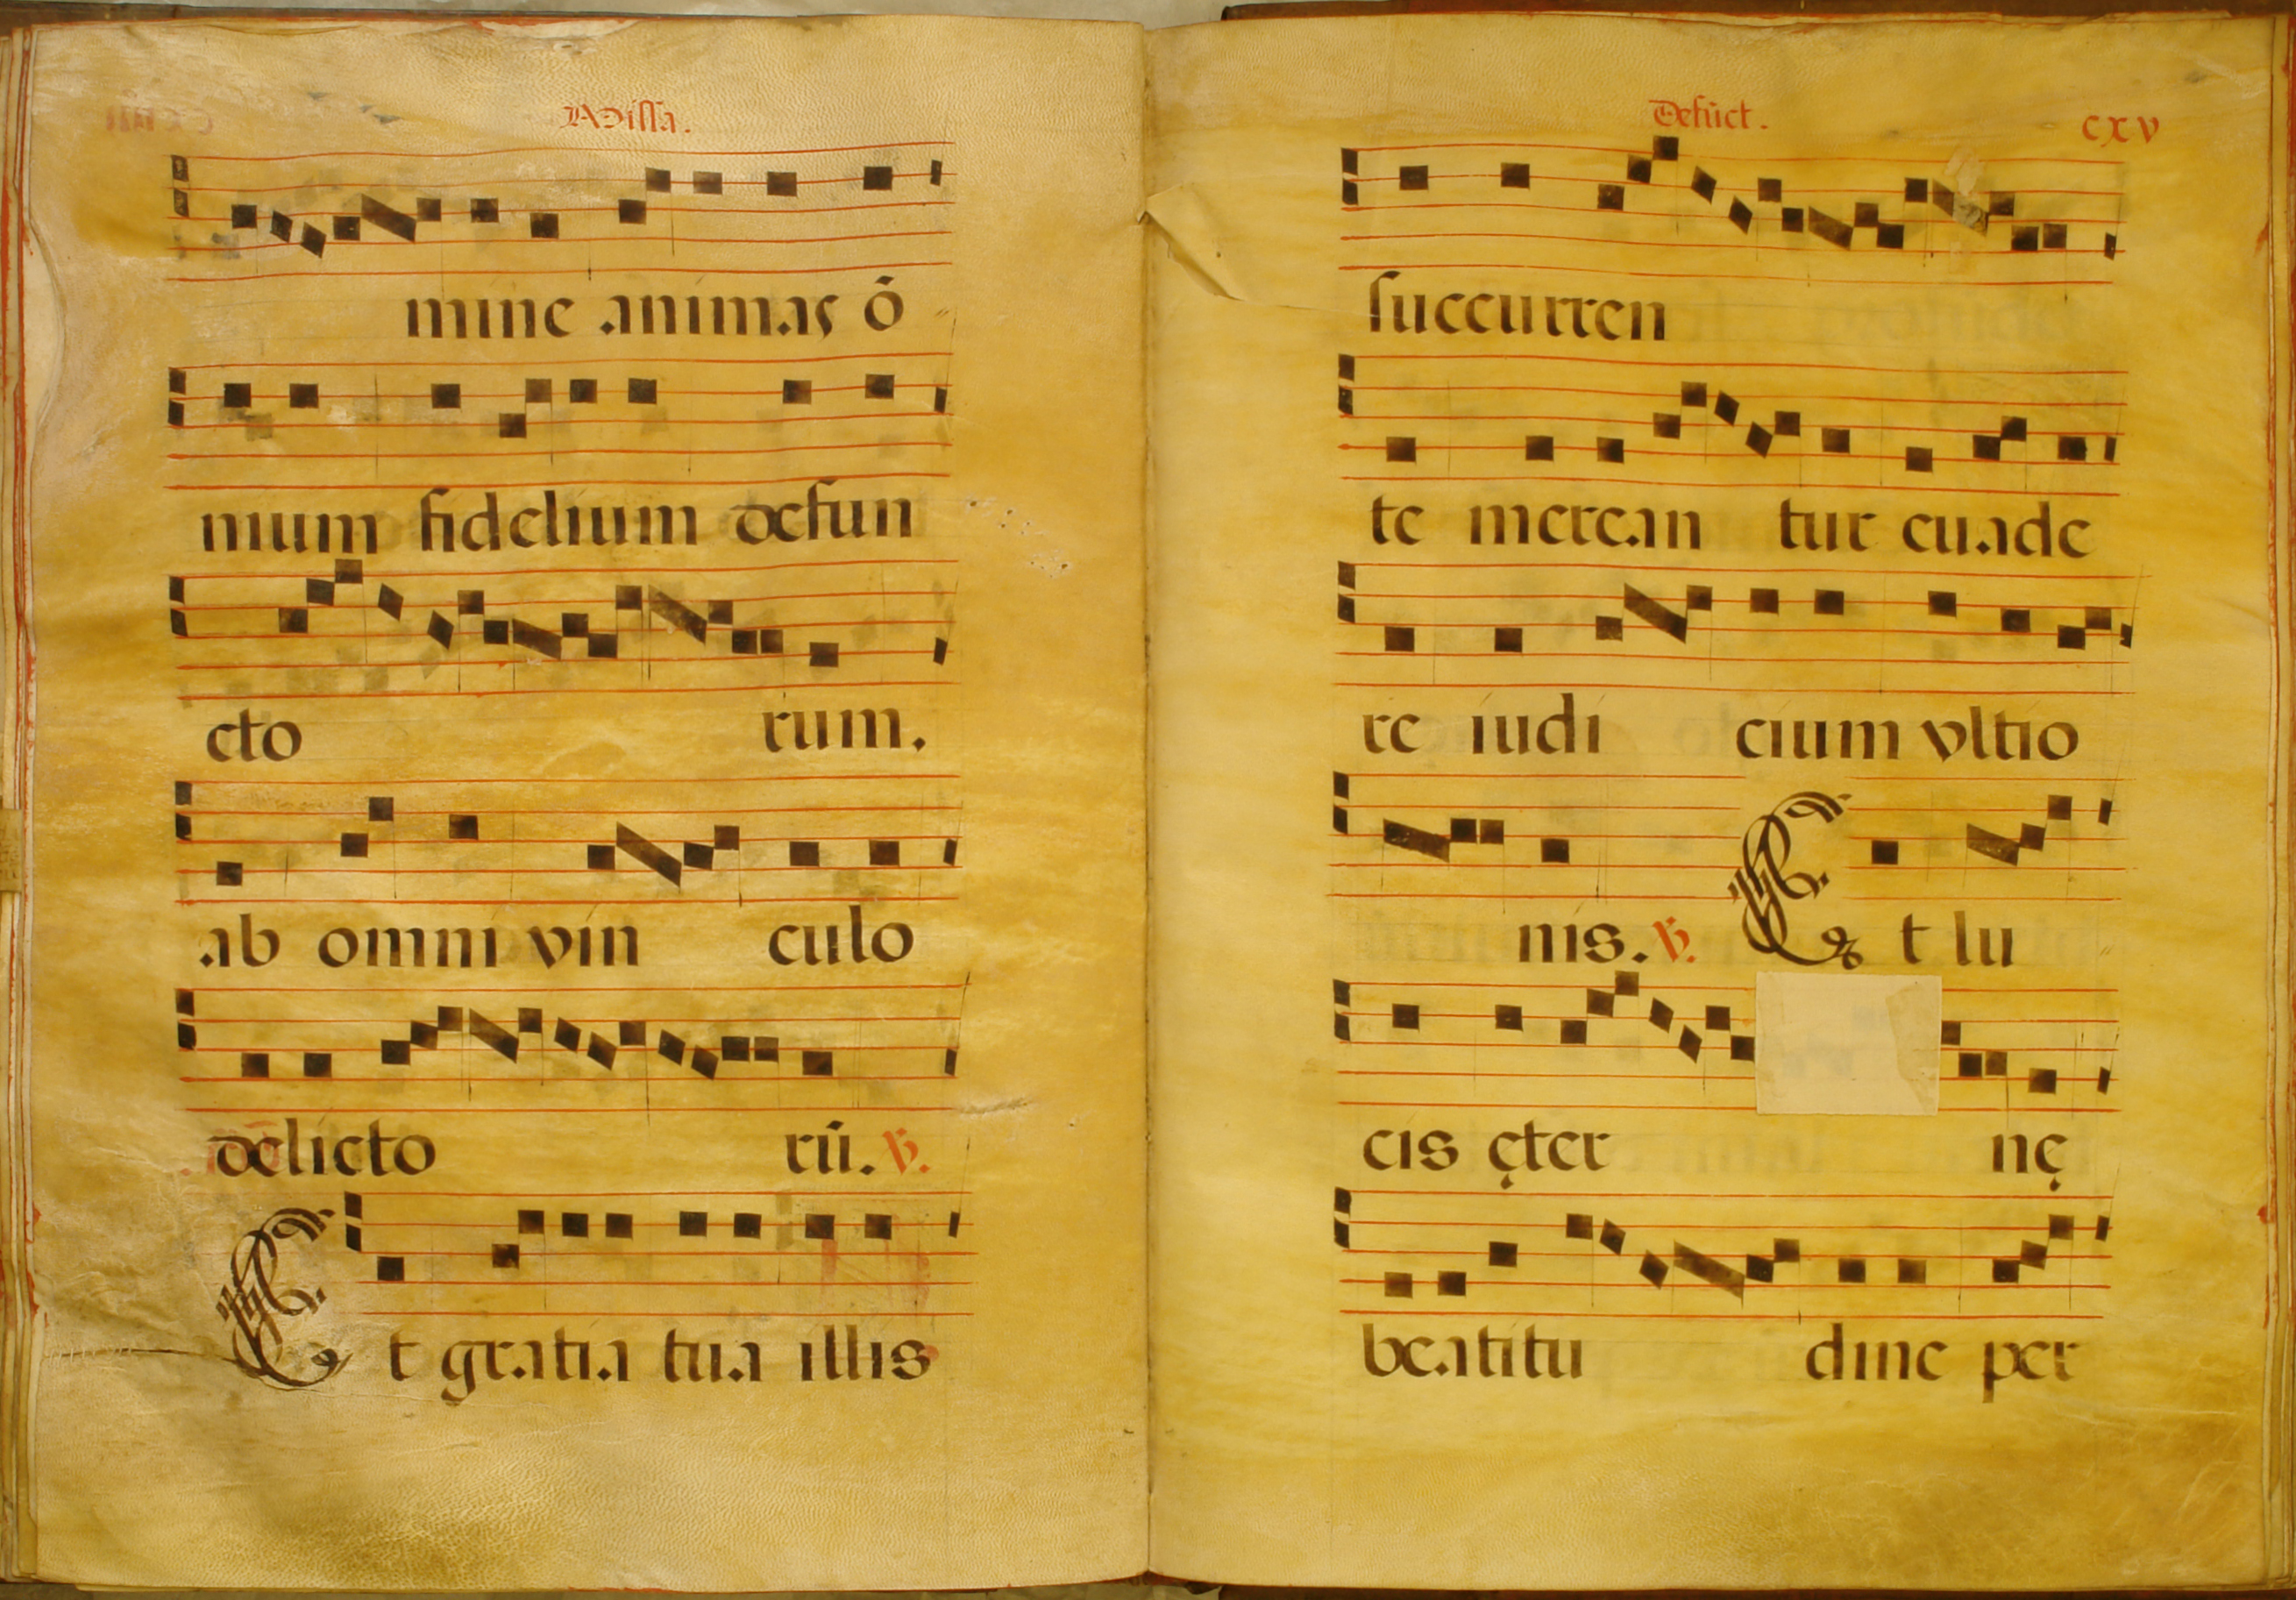 Missā.
mine animas ō
nium fidelium defun
cto rum.
ab omni vin culo
delicto rū. ℣.
Et gratia tua illis
Defūct. CXV
succurren
te merean tur euade
re iudi cium vltio
nis. ℣. Et lu
cis ęter nę
beatitu dine per